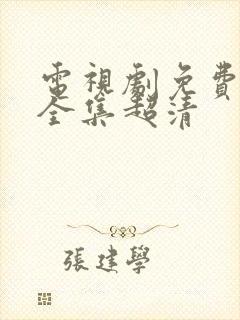 電視劇免費
全集超清
張建學